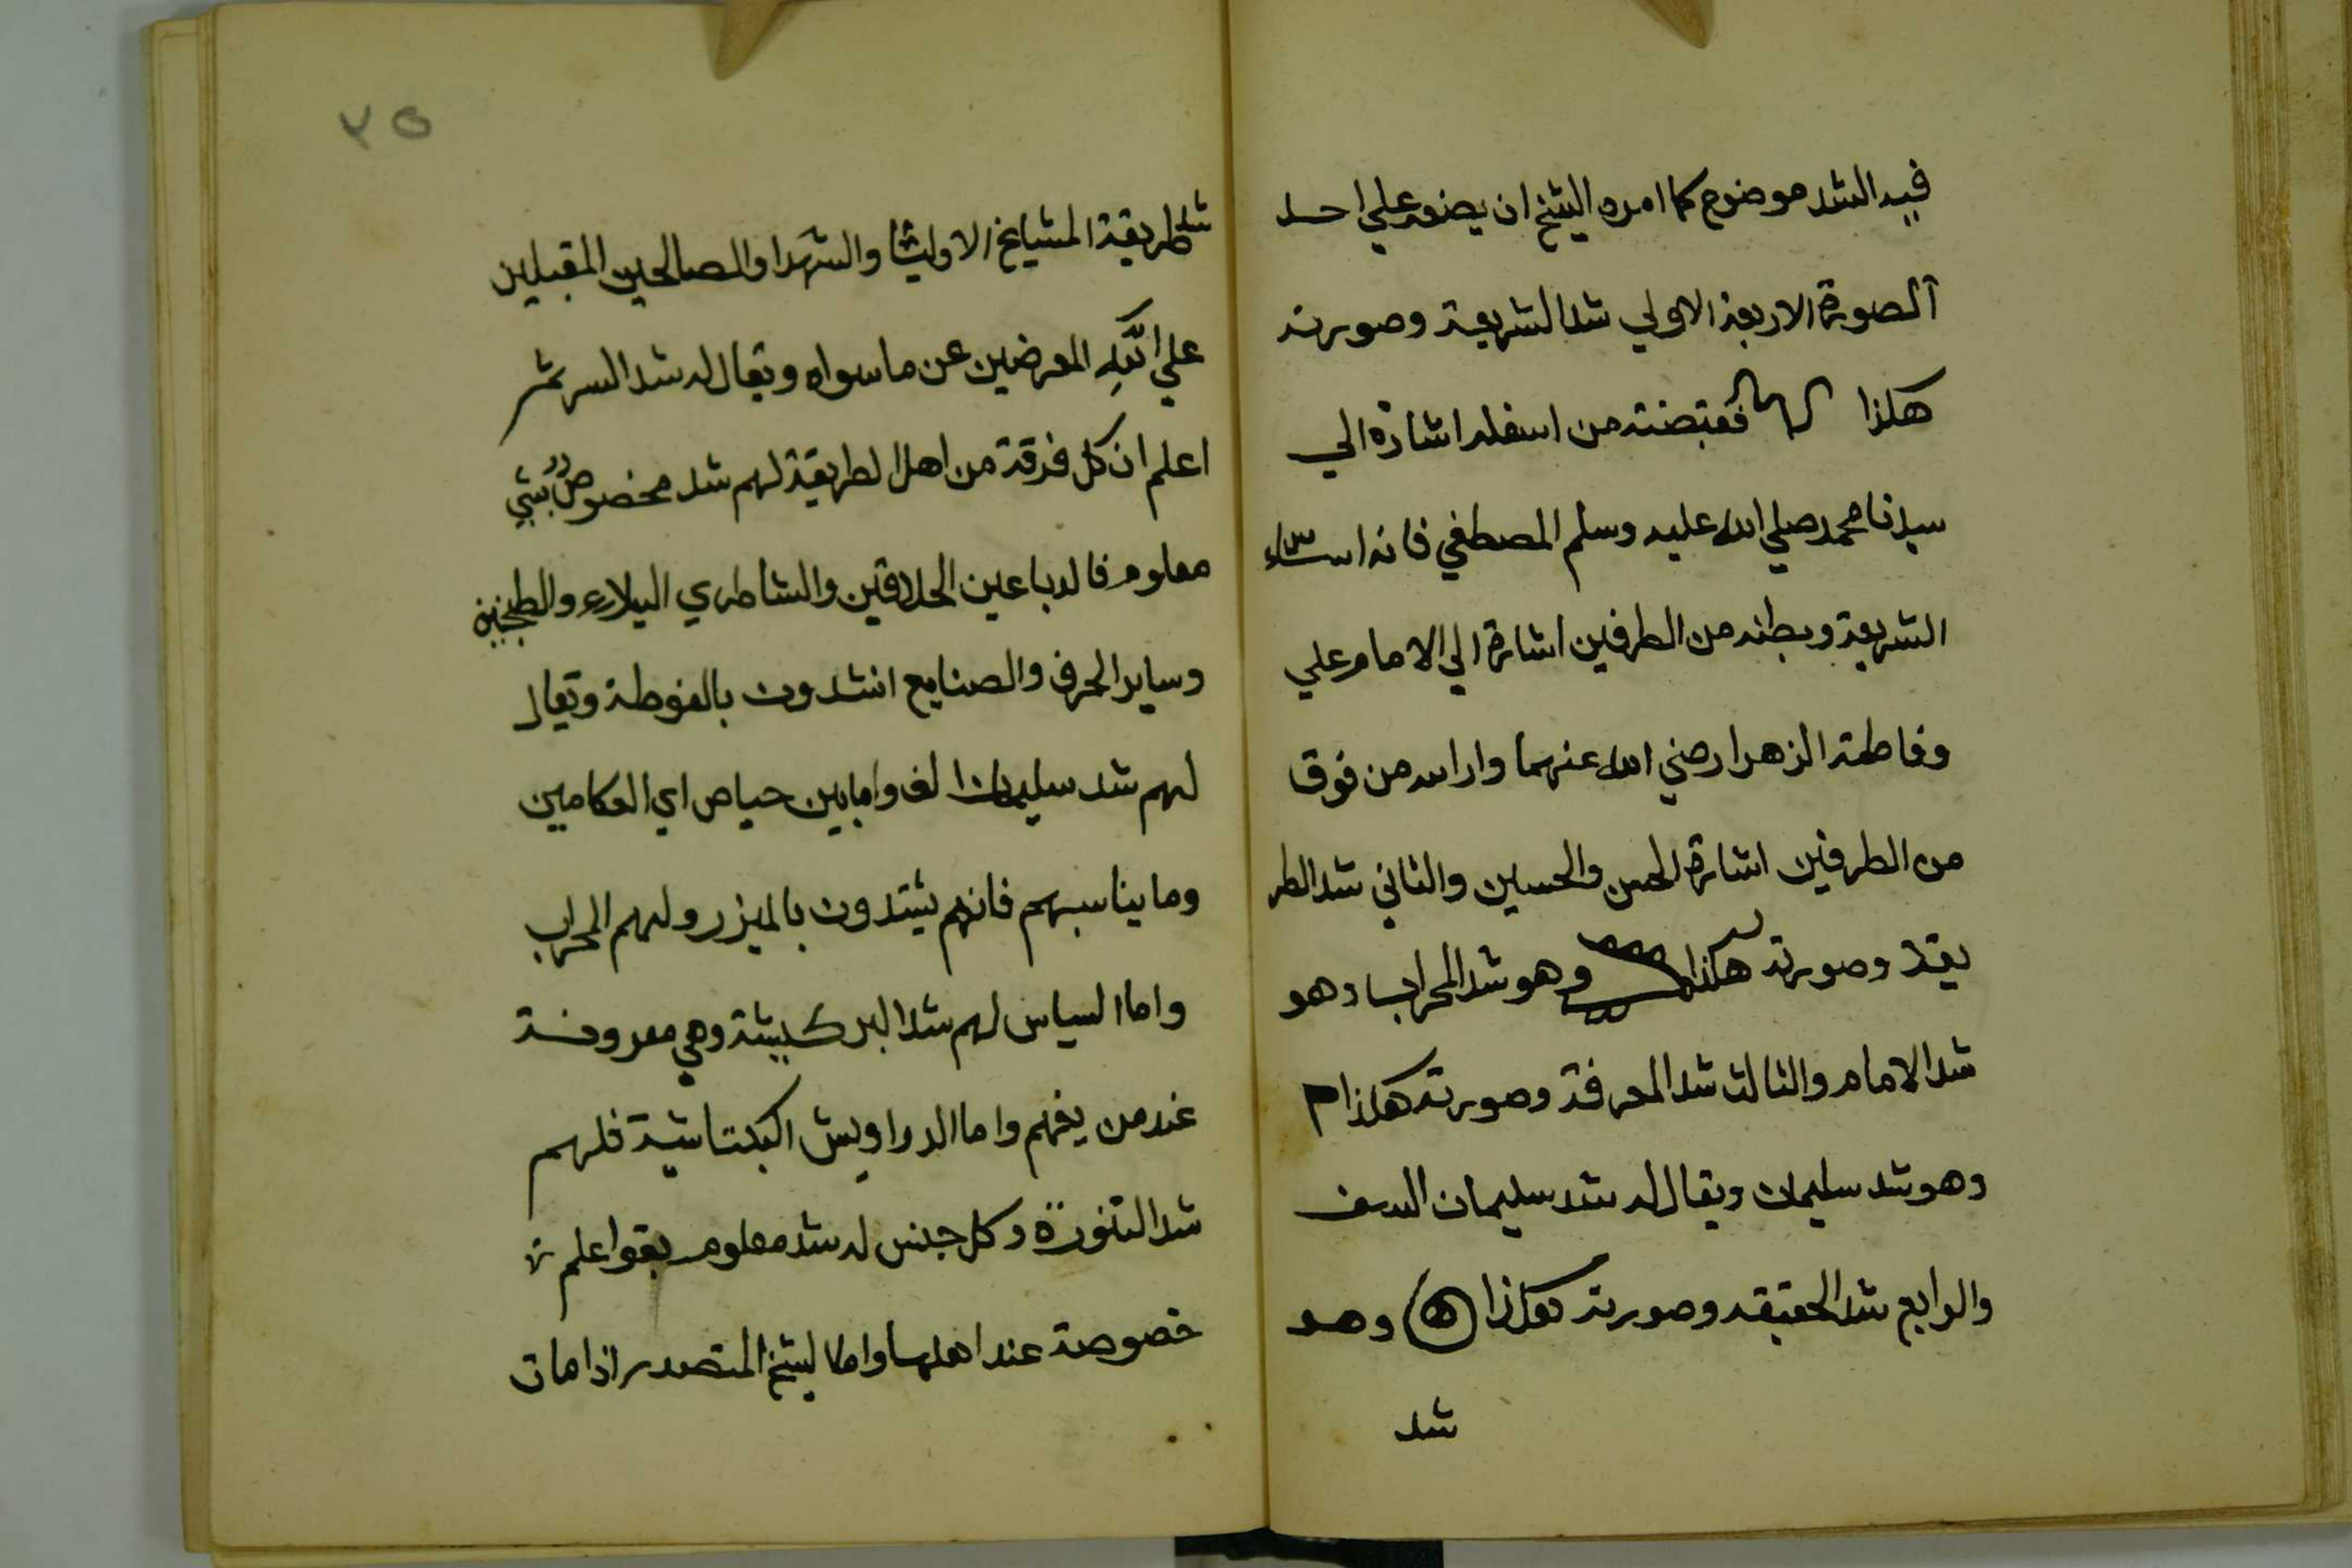 فيه الشد موضوع كما امره الشيخ ان يضعه علي احد
الصورة الاربعة الاولي شد الشريعة وصورته
هكذا فقبضته من اسفله اشارة الي
سيدنا محمد صلي الله عليه وسلم المصطفي فانه اساس
الشريعة وبطنه من الطرفين اشارة الي الامام علي
وفاطمة الزهرا رضي الله عنهما وراسه من فوق
من الطرفين اشارة الحسن والحسين والثاني شد الطر
يقة وصورته هكذا وهو شد المحراب وهو
شد الامام والثالث شد المعرفة وصورته هكذا م
وهو شد سليمان ويقال له شد سليمان الف
والرابع شد الحقيقه وصورته هكذا ه وهو
شد
٢٥
شد طريقة المشايخ الاوليا والشهدا والصالحين المقبلين
علي الله المعرضين عن ما سواه ويقال له شد السر ثم
اعلم ان كل فرقة من اهل الطريقة لهم شد مخصوص بشي
معلوم فالدباعين الحلاقين والشاطري
وساير الحرف والصنايع انشدون بالفوطة ويقال
لهم شد سليمان الف وامابين حياص اي العكامين
وما يناسبهم فانهم يشتدون بالميزر ولهم المحراب
واما السياس لهم شد البركسيثة وهي معروفة
عند من يفهم واما الدراويش البكتاشية فلهم
شد التنورة وكل جنس له شد معلوم بقواعلم
خصوصة عند اهلها واما الشيخ المتصدر اذا مات